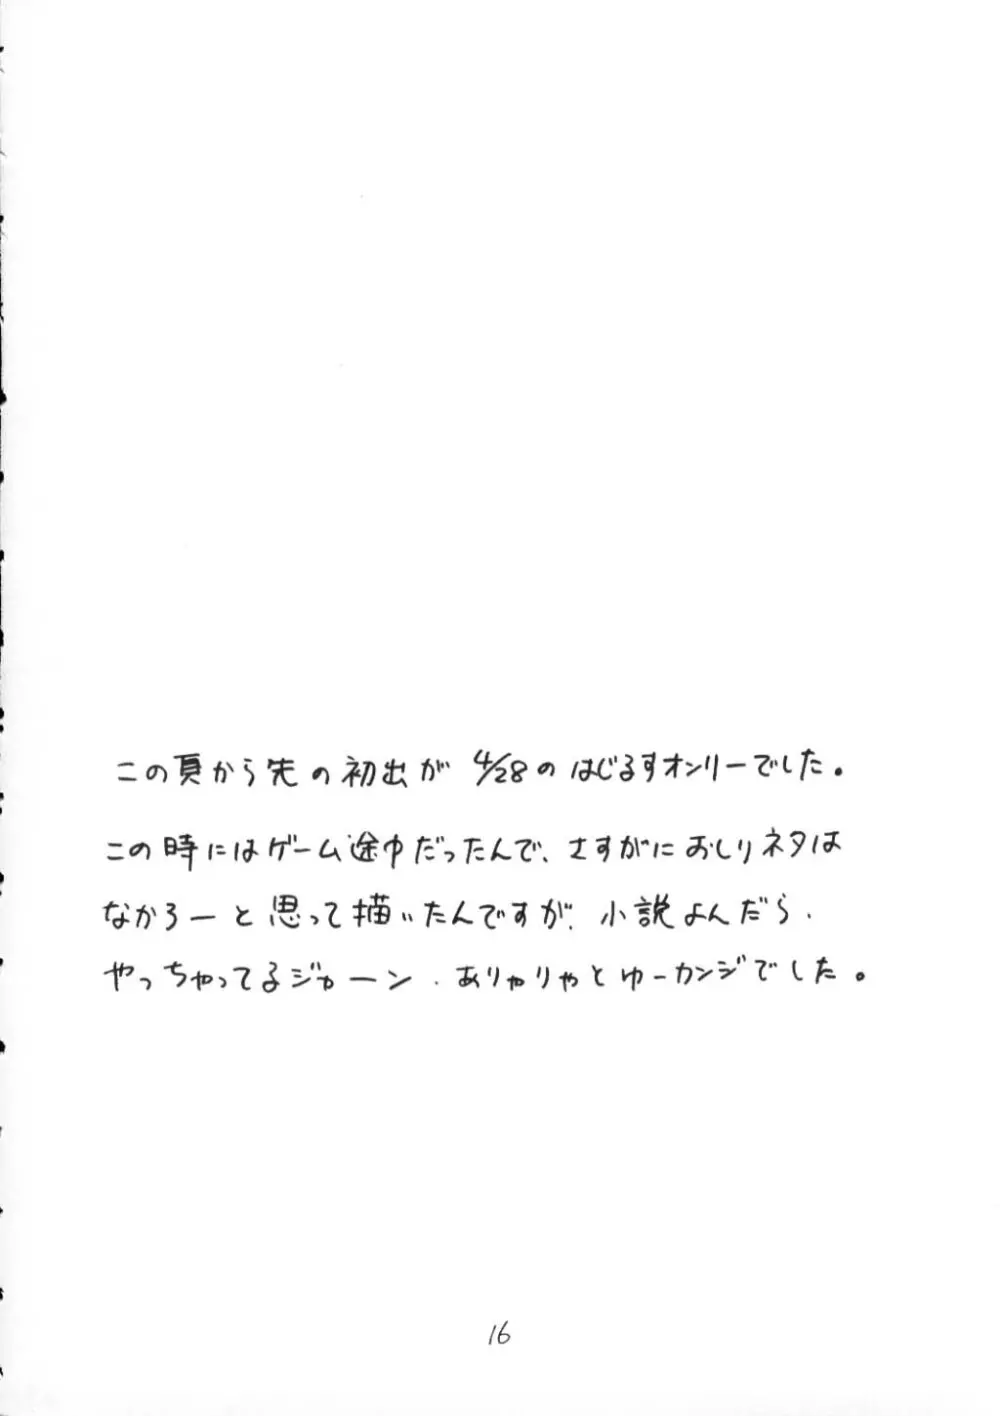 この頁から先の初出が4/28のはじるすオンリーでした。
この時にはゲーム途中だったんで、さすがにおしりネタは
なかろーと思って描いたんですが、小説よんだら、
やっちゃってるジャーン、ありゃりゃとゆーカンジでした。
16